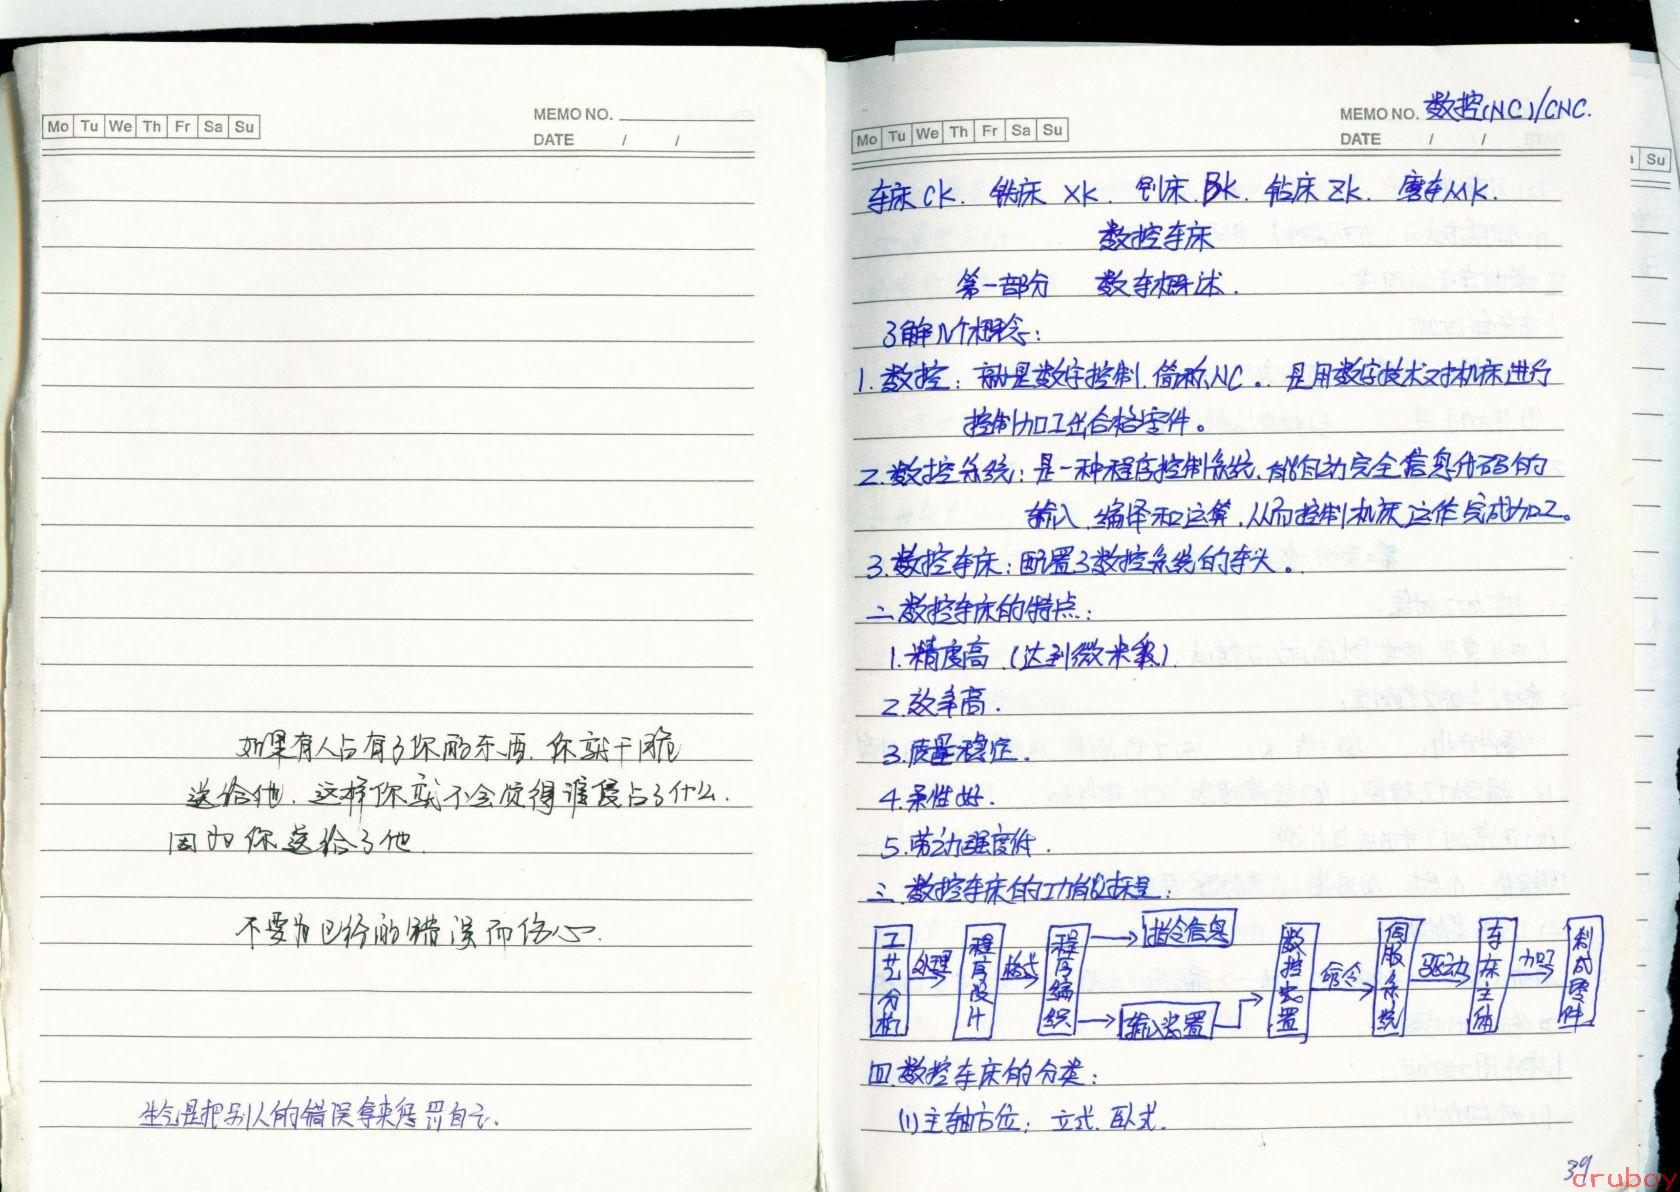 Mo Tu We Th Fr Sa Su
MEMO NO.
DATE / /
如果有人占有了你的东西.你就干脆
送给他.这样你就不会觉得谁侵占了什么.
因为你送给了他.
不要为已经的错误而伤心.
生气是把别人的错误拿来惩罚自己.
Mo Tu We Th Fr Sa Su
MEMO NO. 数控(NC)/CNC.
DATE / /
车床CK. 铣床 XK. 刨床.BK. 钻床ZK. 磨车MK.
数控车床
第一部分 数车概述.
了解几个概念:
1.数控: 就是数字控制.简称NC。是用数字技术对机床进行
控制加工出合格零件。
2.数控系统: 是一种程序控制系统.能自动完全信息代码的
输入.编译和运算.从而控制机床运作完成加工。
3.数控车床:配置了数控系统的车头。
二.数控车床的特点:
1.精度高.(达到微米级)
2.效率高.
3.质量稳定.
4.柔性好.
5.劳动强度低.
三.数控车床的工功能就是:
工艺分析 处理 程序设计 格式 程序编织 指令信息 输入装置 数控装置 命令 伺服系统 驱动 车床主轴 加工 制成零件
四.数控车床的分类:
(1)主轴方位: 立式.卧式.
39
cruboy
Su